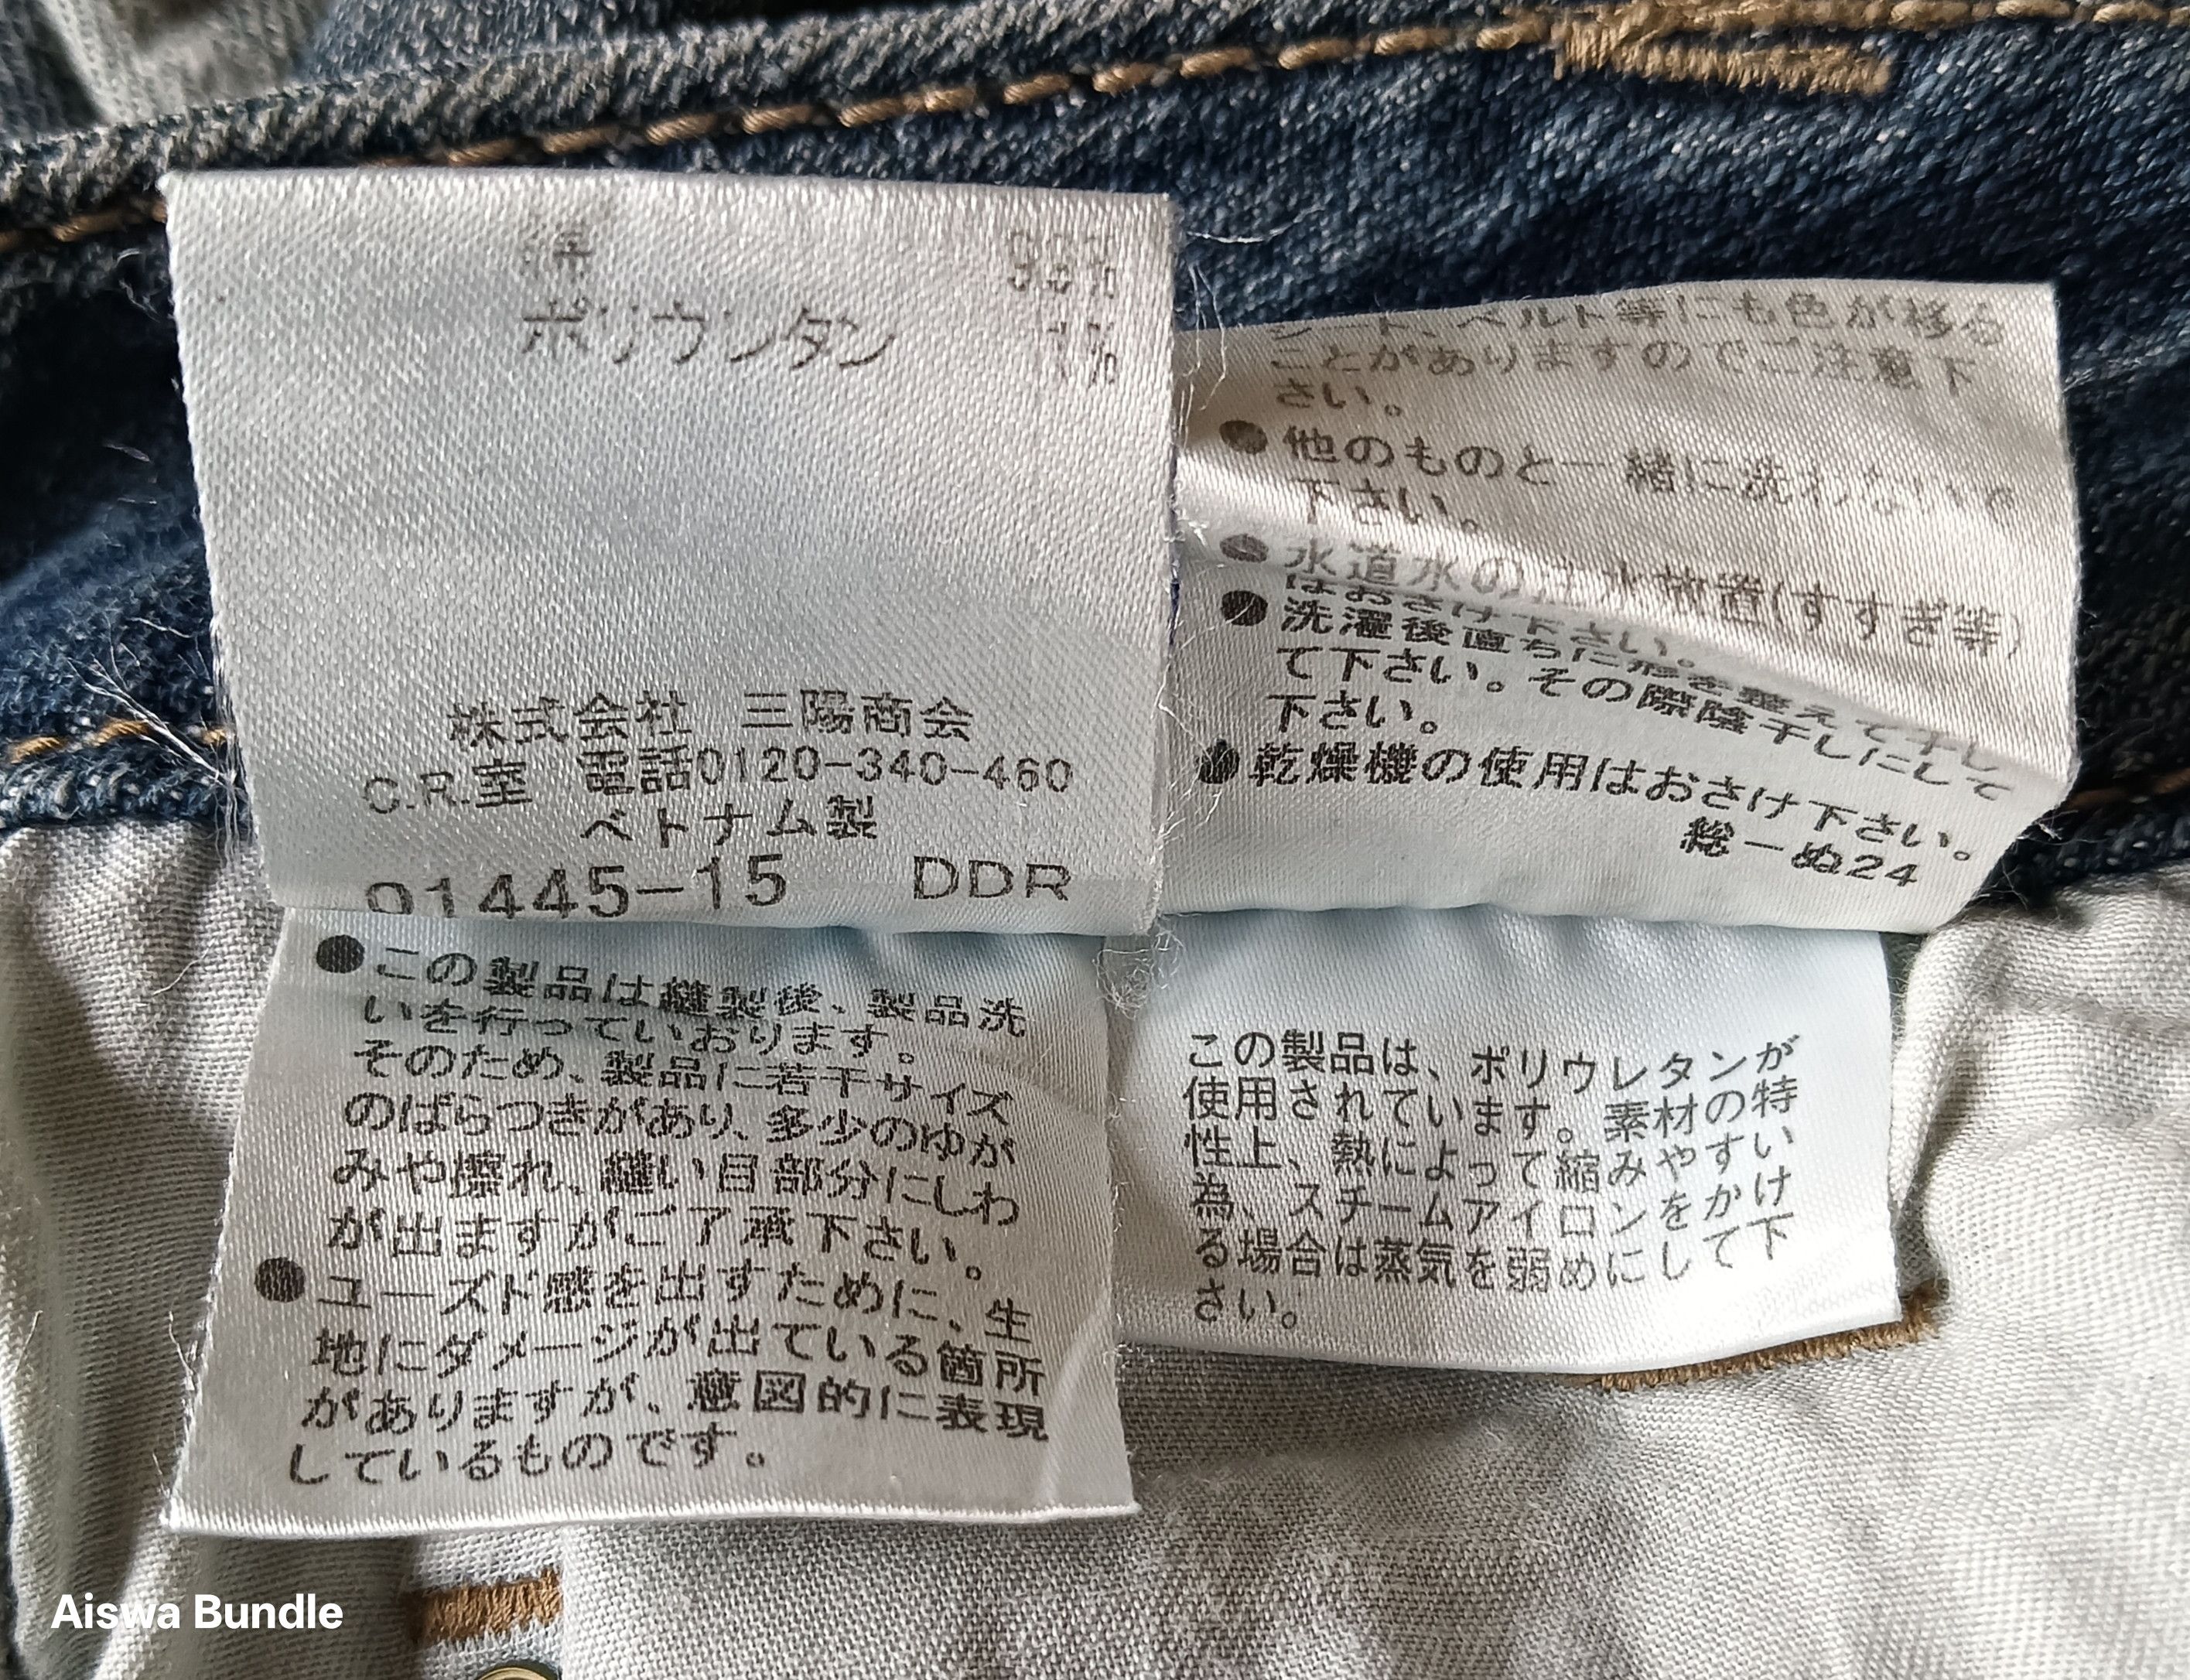 綿 99%
ポリウレタン 1%
株式会社 三陽商会
C.R.室 電話0120-340-460
ベトナム製
01445-15 DDR
シート、ベルト等にも色が移る
ことがありますのでご注意下
さい。
●他のものと一緒に洗わないで
下さい。
●水道水の注水放置(すすぎ等)
はおさけ下さい。
●洗濯後直ちに形を整えて干し
て下さい。その際陰干しにして
下さい。
●乾燥機の使用はおさけ下さい。
総ーぬ24
●この製品は縫製後、製品洗
いを行っていおります。
そのため、製品に若干サイズ
のばらつきがあり、多少のゆが
みや擦れ、縫い目部分にしわ
が出ますがご了承下さい。
●ユーズド感を出すために、生
地にダメージが出ている箇所
がありますが、意図的に表現
しているものです。
この製品は、ポリウレタンが
使用されています。素材の特
性上、熱によって縮みやすい
為、スチームアイロンをかけ
る場合は蒸気を弱めにして下
さい。
Aiswa Bundle